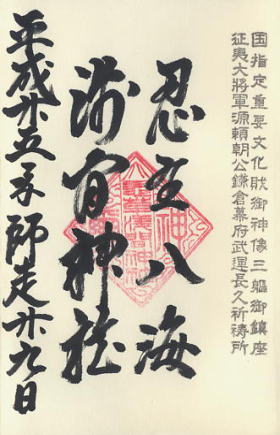 国指定重要文化財御神像三躯御鎮座
征夷大將軍源頼朝公鎌倉幕府武運長久祈祷所
忍野八海
浅間神社
平成廿五年師走廿九日